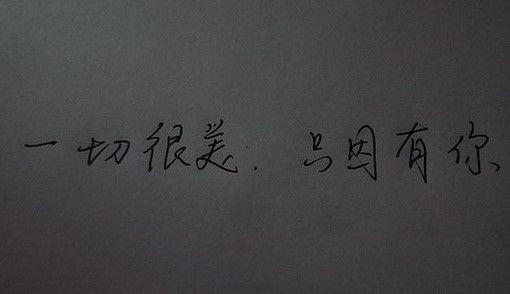 一切很美.只因有你、